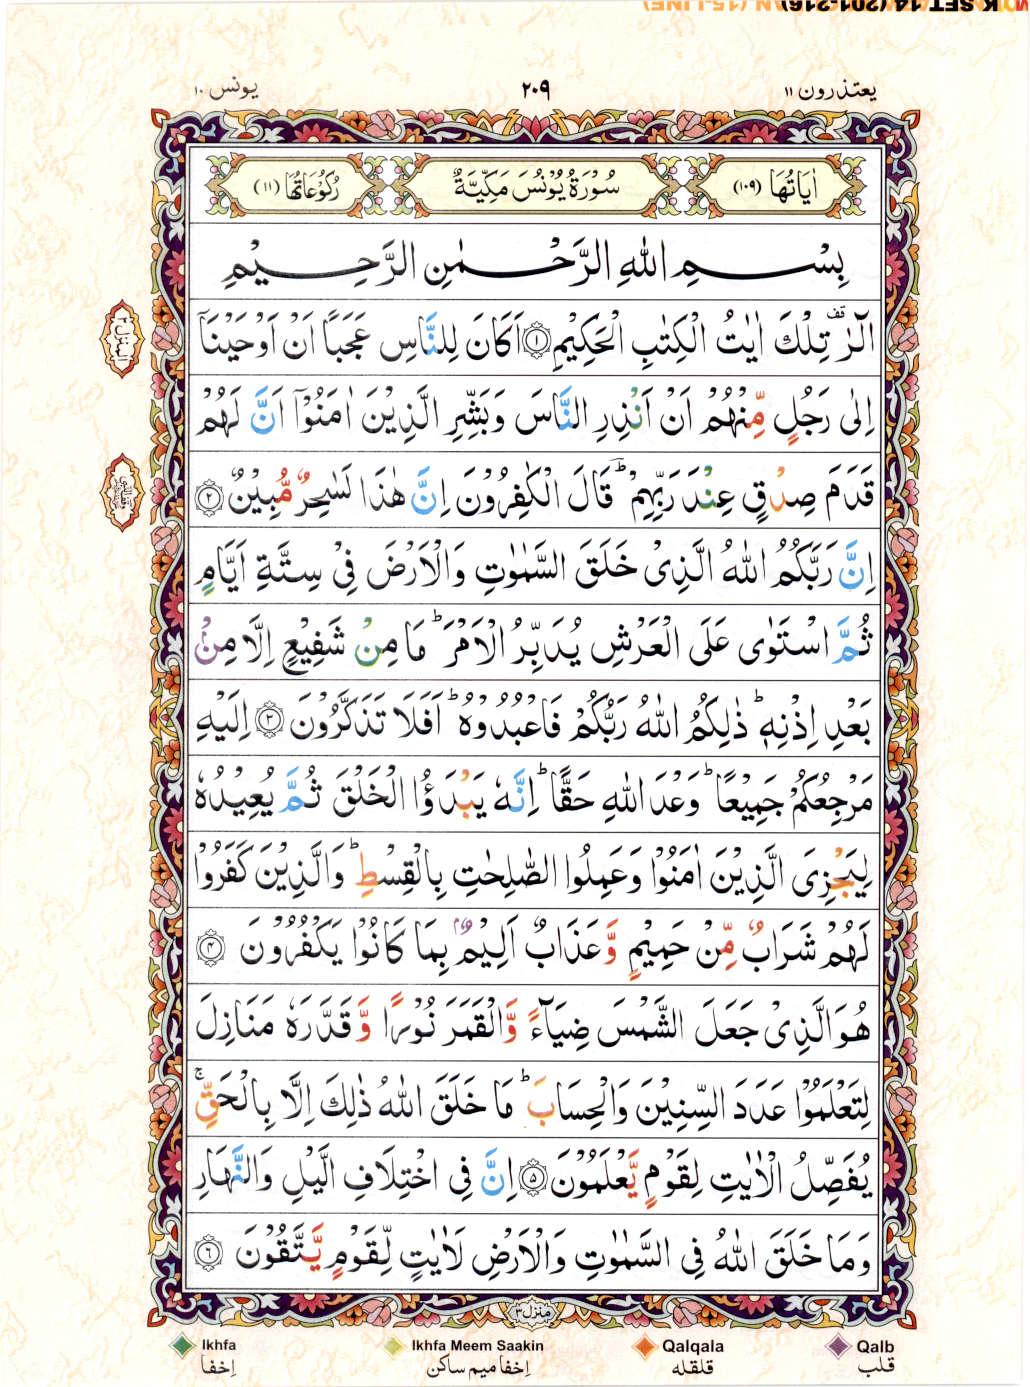 یعتذرون ۱۱
۲۰۹
یونس ۱۰
اٰیَاتُهَا (۱۰۹)
سُوْرَةُ یُوْنُسَ مَكِّیَّةٌ
رُكُوْعَاتُهَا (۱۱)
بِسْمِ اللّٰهِ الرَّحْمٰنِ الرَّحِیْمِ
الٓرٰ ۫ تِلْكَ اٰیٰتُ الْكِتٰبِ الْحَكِیْمِ ۝۱ اَكَانَ لِلنَّاسِ عَجَبًا اَنْ اَوْحَیْنَاۤ
المنزل ۳
اِلٰی رَجُلٍ مِّنْهُمْ اَنْ اَنْذِرِ النَّاسَ وَبَشِّرِ الَّذِیْنَ اٰمَنُوْۤا اَنَّ لَهُمْ
قَدَمَ صِدْقٍ عِنْدَ رَبِّهِمْ ؕ قَالَ الْكٰفِرُوْنَ اِنَّ هٰذَا لَسٰحِرٌ مُّبِیْنٌ ۝۲
اِنَّ رَبَّكُمُ اللّٰهُ الَّذِیْ خَلَقَ السَّمٰوٰتِ وَالْاَرْضَ فِیْ سِتَّةِ اَیَّامٍ
ثُمَّ اسْتَوٰی عَلَی الْعَرْشِ یُدَبِّرُ الْاَمْرَ ؕ مَا مِنْ شَفِیْعٍ اِلَّا مِنْۢ
بَعْدِ اِذْنِهٖ ؕ ذٰلِكُمُ اللّٰهُ رَبُّكُمْ فَاعْبُدُوْهُ ؕ اَفَلَا تَذَكَّرُوْنَ ۝۳ اِلَیْهِ
مَرْجِعُكُمْ جَمِیْعًا ؕ وَعْدَ اللّٰهِ حَقًّا ؕ اِنَّهٗ یَبْدَؤُا الْخَلْقَ ثُمَّ یُعِیْدُهٗ
لِیَجْزِیَ الَّذِیْنَ اٰمَنُوْا وَعَمِلُوا الصّٰلِحٰتِ بِالْقِسْطِ ؕ وَالَّذِیْنَ كَفَرُوْا
لَهُمْ شَرَابٌ مِّنْ حَمِیْمٍ وَّعَذَابٌ اَلِیْمٌۢ بِمَا كَانُوْا یَكْفُرُوْنَ ۝۴
هُوَ الَّذِیْ جَعَلَ الشَّمْسَ ضِیَآءً وَّالْقَمَرَ نُوْرًا وَّقَدَّرَهٗ مَنَازِلَ
لِتَعْلَمُوْا عَدَدَ السِّنِیْنَ وَالْحِسَابَ ؕ مَا خَلَقَ اللّٰهُ ذٰلِكَ اِلَّا بِالْحَقِّ ۚ
یُفَصِّلُ الْاٰیٰتِ لِقَوْمٍ یَّعْلَمُوْنَ ۝۵ اِنَّ فِی اخْتِلَافِ الَّیْلِ وَالنَّهَارِ
وَمَا خَلَقَ اللّٰهُ فِی السَّمٰوٰتِ وَالْاَرْضِ لَاٰیٰتٍ لِّقَوْمٍ یَّتَّقُوْنَ ۝۶
منزل ۳
Ikhfa
Ikhfa Meem Saakin
Qalqala
Qalb
اِخفا
اِخفا میم ساکن
قلقله
قلب